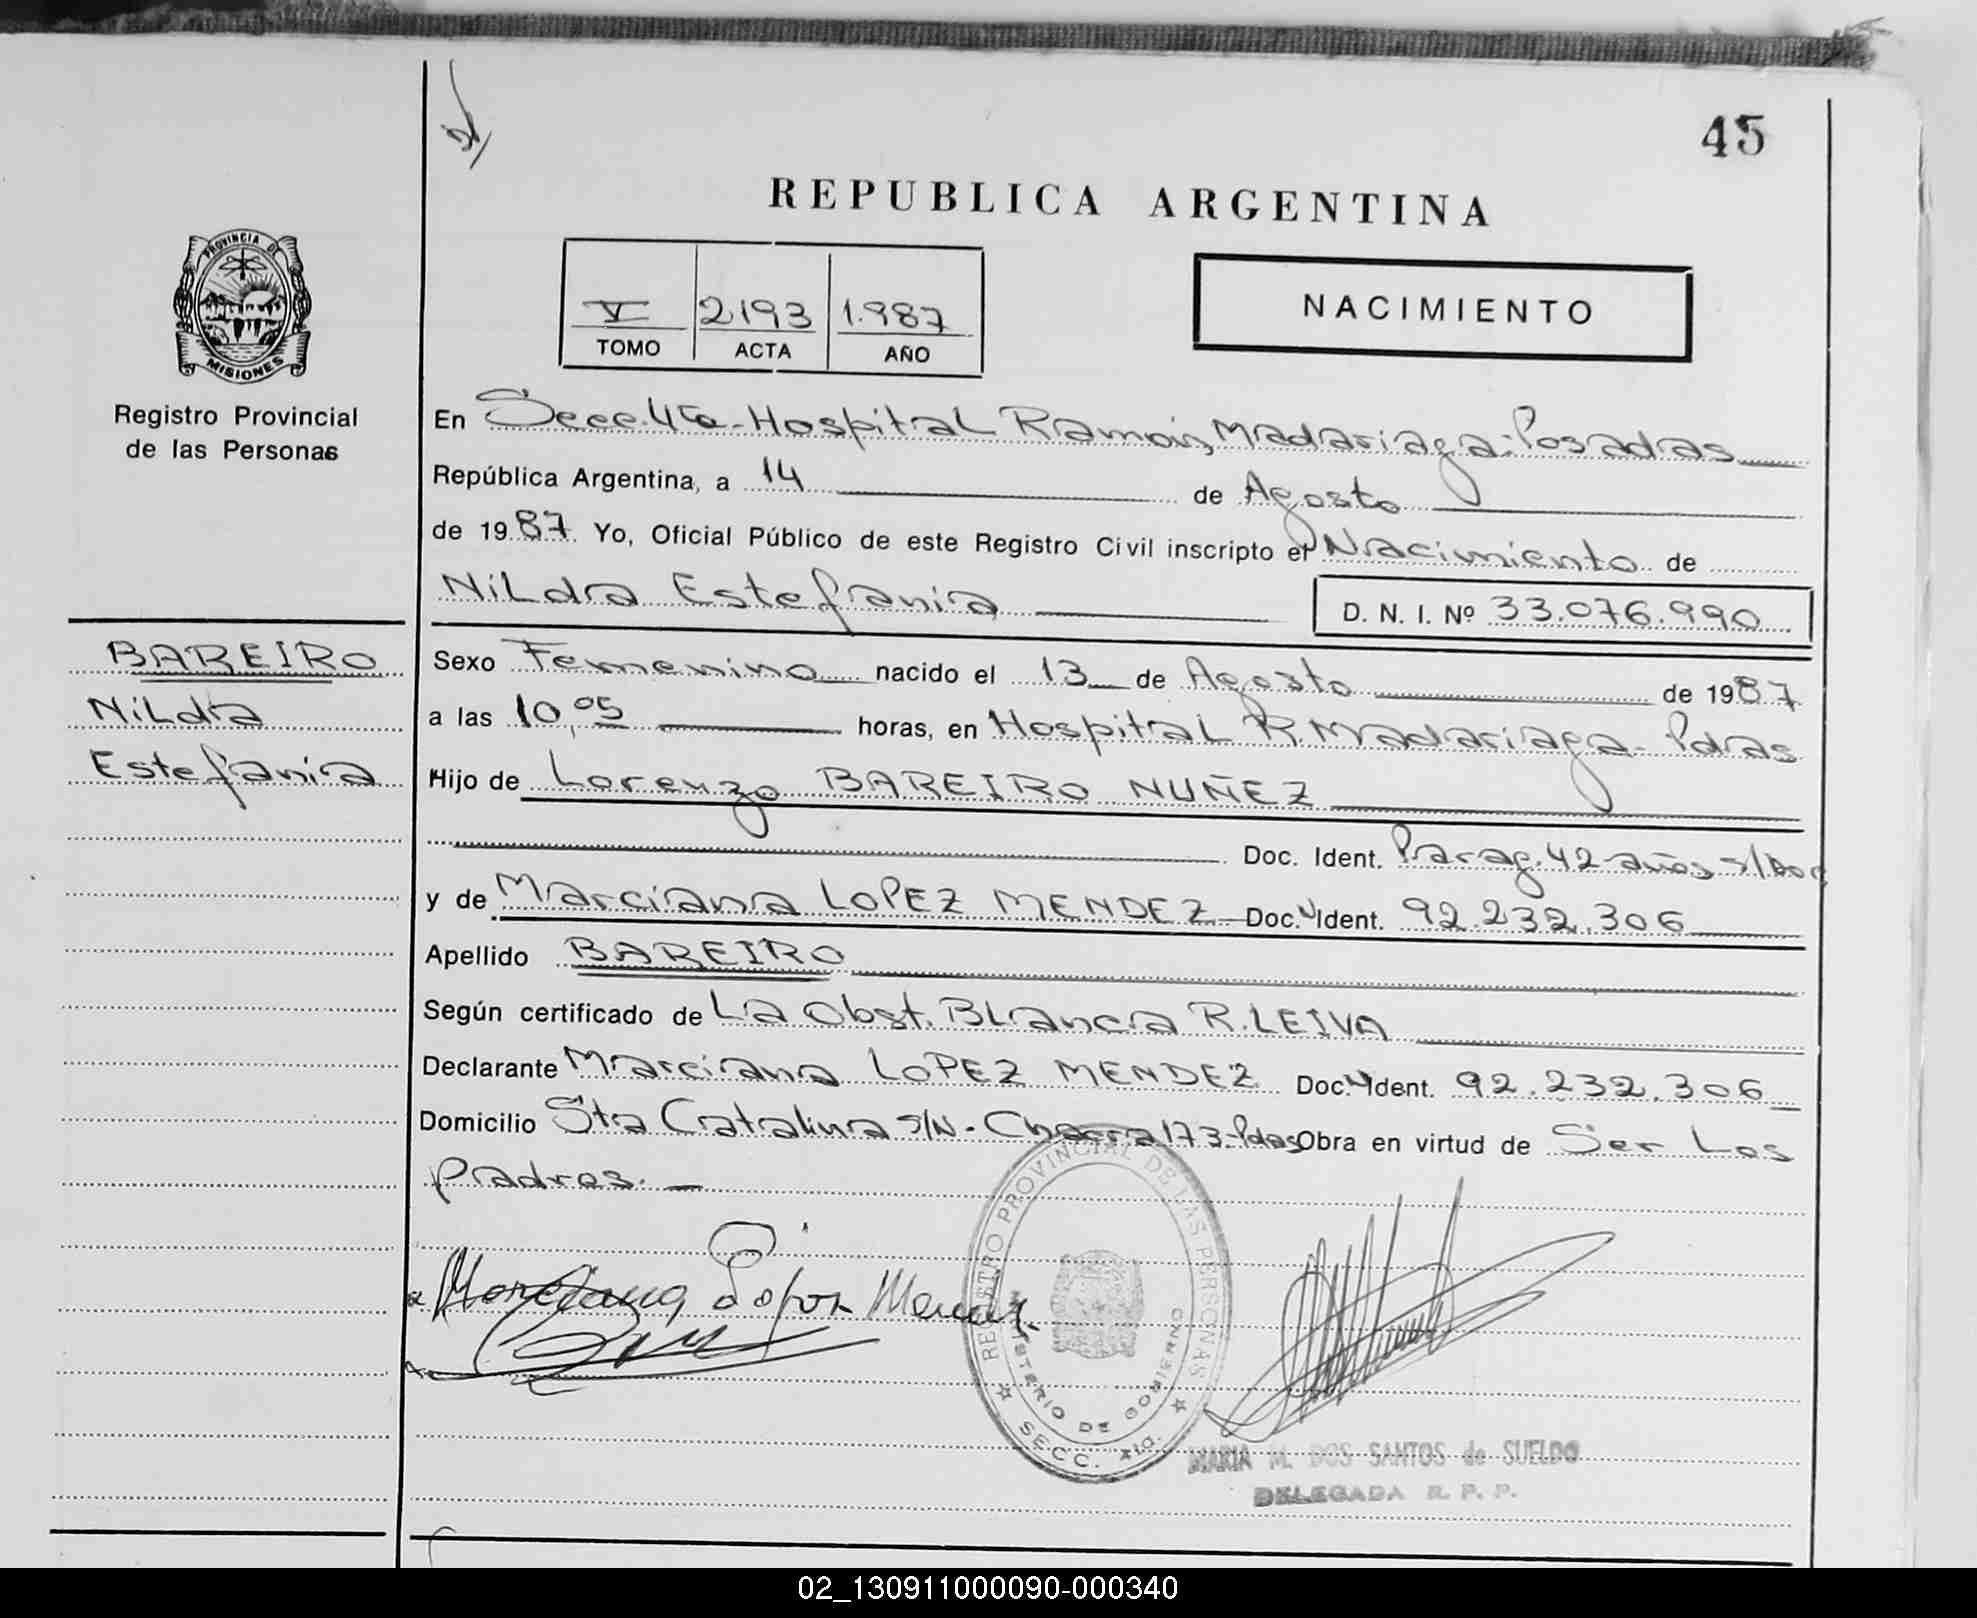 45
REPUBLICA ARGENTINA
PROVINCIA DE
MISIONES
Registro Provincial
de las Personas
V 2193 1.987
TOMO ACTA AÑO
NACIMIENTO
En Secc. 4ta - Hospital Ramón Madariaga - Posadas
República Argentina, a 14 de Agosto
de 1987. Yo, Oficial Público de este Registro Civil inscripto el Nacimiento de
Nilda Estefania D. N. I. Nº 33.076.990
BAREIRO
Nilda
Estefania
Sexo Femenino nacido el 13 de Agosto de 1987
a las 10,05 horas, en Hospital R. Madariaga - Pdas
Hijo de Lorenzo BAREIRO NUÑEZ
Doc. Ident. Parag. 42 años s/Doc
y de Marciana LOPEZ MENDEZ Doc. Ident. 92.232.306
Apellido BAREIRO
Según certificado de La Obst. Blanca R. LEIVA
Declarante Marciana LOPEZ MENDEZ Doc. Ident. 92.232.306
Domicilio Sta Catalina s/N - Chacra 173 - Pdas Obra en virtud de Ser Los
padres. —
Marciana Lopez Mendez
REGISTRO PROVINCIAL DE LAS PERSONAS
MINISTERIO DE GOBIERNO
SECC. 4ta.
MARIA M. DOS SANTOS de SUELDO
DELEGADA R. P. P.
02_130911000090-000340